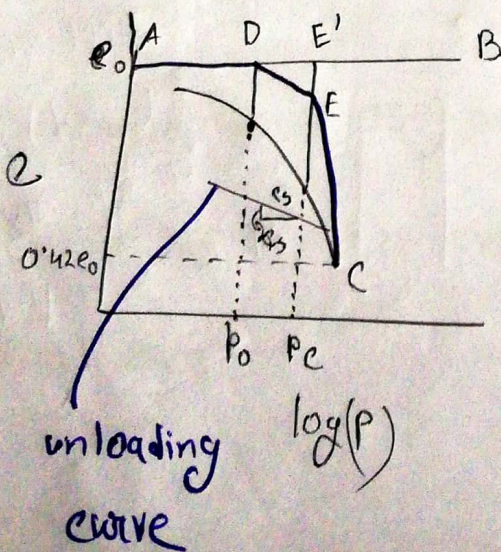 A D E' B
e₀
E
e
cs
0.42e₀
C
p₀ pc
log(p)
unloading
curve